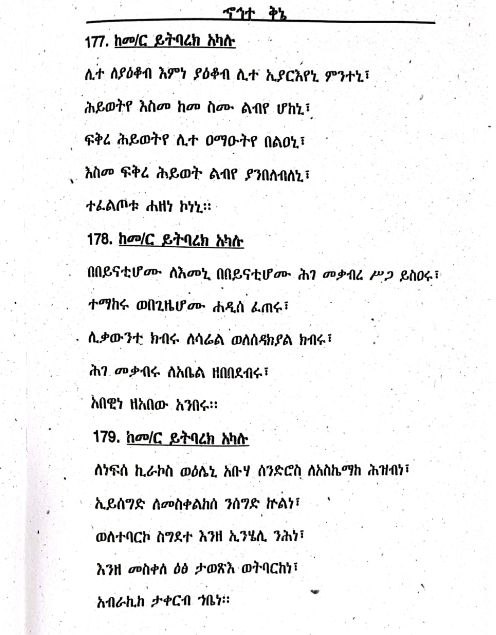 ኆኅተ ቅኔ
177. ከመ/ር ይትባረክ አካሉ
ሊተ ለያዕቆብ እምነ ያዕቆብ ሊተ ኢያርእየኒ ምንተኒ፣
ሕይወትየ እስመ ከመ ስሙ ልብየ ሆከኒ፣
ፍቅረ ሕይወትየ ሊተ ዐማዑትየ በልዐኒ፣
እስመ ፍቅረ ሕይወት ልብየ ያንበለብለኒ፣
ተፈልጦቱ ሐዘነ ኮነኒ።
178. ከመ/ር ይትባረክ አካሉ
በበይናቲሆሙ ለእመኒ በበይናቲሆሙ ሕገ መቃብረ ሥጋ ይስዕሩ፣
ተማከሩ ወበጊዜሆሙ ሐዲሰ ፈጠሩ፣
ሊቃውንተ ክብሩ ለሳሬል ወለሰዳክያል ክብሩ፣
ሕገ መቃብሩ ለአቤል ዘበበደብሩ፣
አበዊነ ዘአበው አንበሩ።
179. ከመ/ር ይትባረክ አካሉ
ለነፍሰ ኪራኮስ ወዕሌኒ አቡሃ ሰንድሮስ ለአስኬማከ ሕዝብነ፣
ኢይሰግድ ለመስቀልከሰ ንሰግድ ኵልነ፣
ወለተባርኮ ስግደተ እንዘ ኢንሄሊ ንሕነ፣
እንዘ መስቀለ ዕፅ ታወጽእ ወትባርከነ፣
አብራኪከ ታቀርብ ኀቤነ።